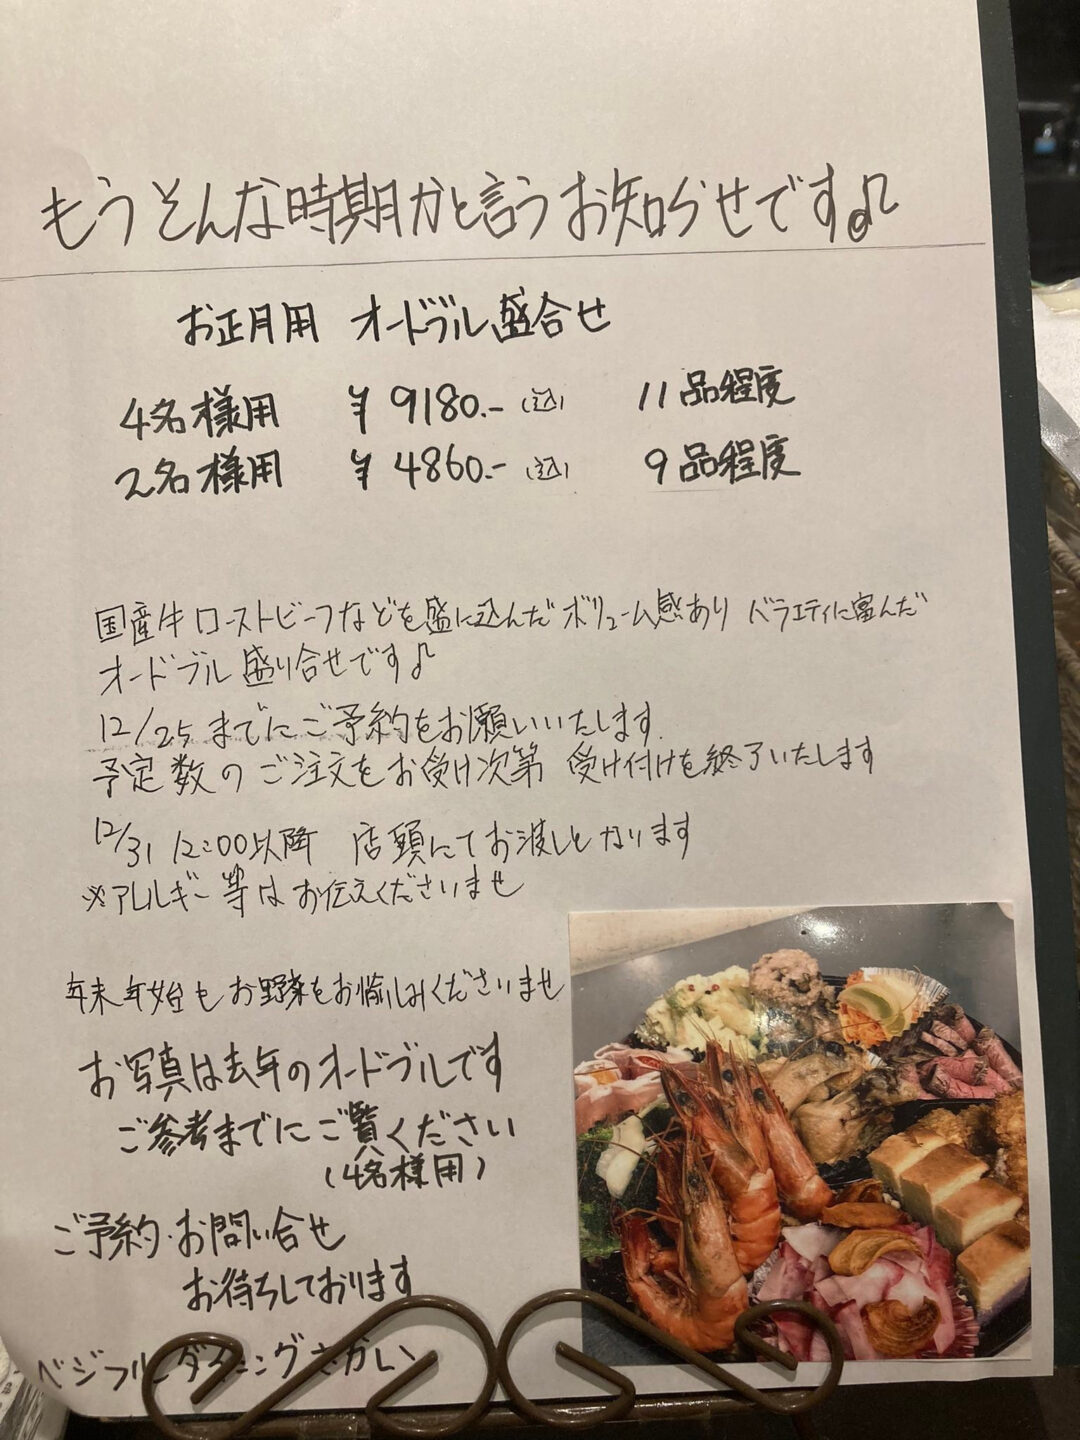 もうそんな時期かと言うお知らせです♪
お正月用 オードブル盛合せ
4名様用 ¥9180.-(込) 11品程度
2名様用 ¥4860.-(込) 9品程度
国産牛ローストビーフなどを盛に込んだボリューム感あり バラエティに富んだ
オードブル盛り合せです♪
12/25までにご予約をお願いいたします
予定数のご注文をお受け次第 受け付けを終了いたします
12/31 12:00以降 店頭にてお渡しとなります
※アレルギー等はお伝えくださいませ
年末年始もお野菜をお愉しみくださいませ
お写真は去年のオードブルです
ご参考までにご覧ください
(4名様用)
ご予約・お問い合せ
お待ちしております
ベジフルダイニングさかい